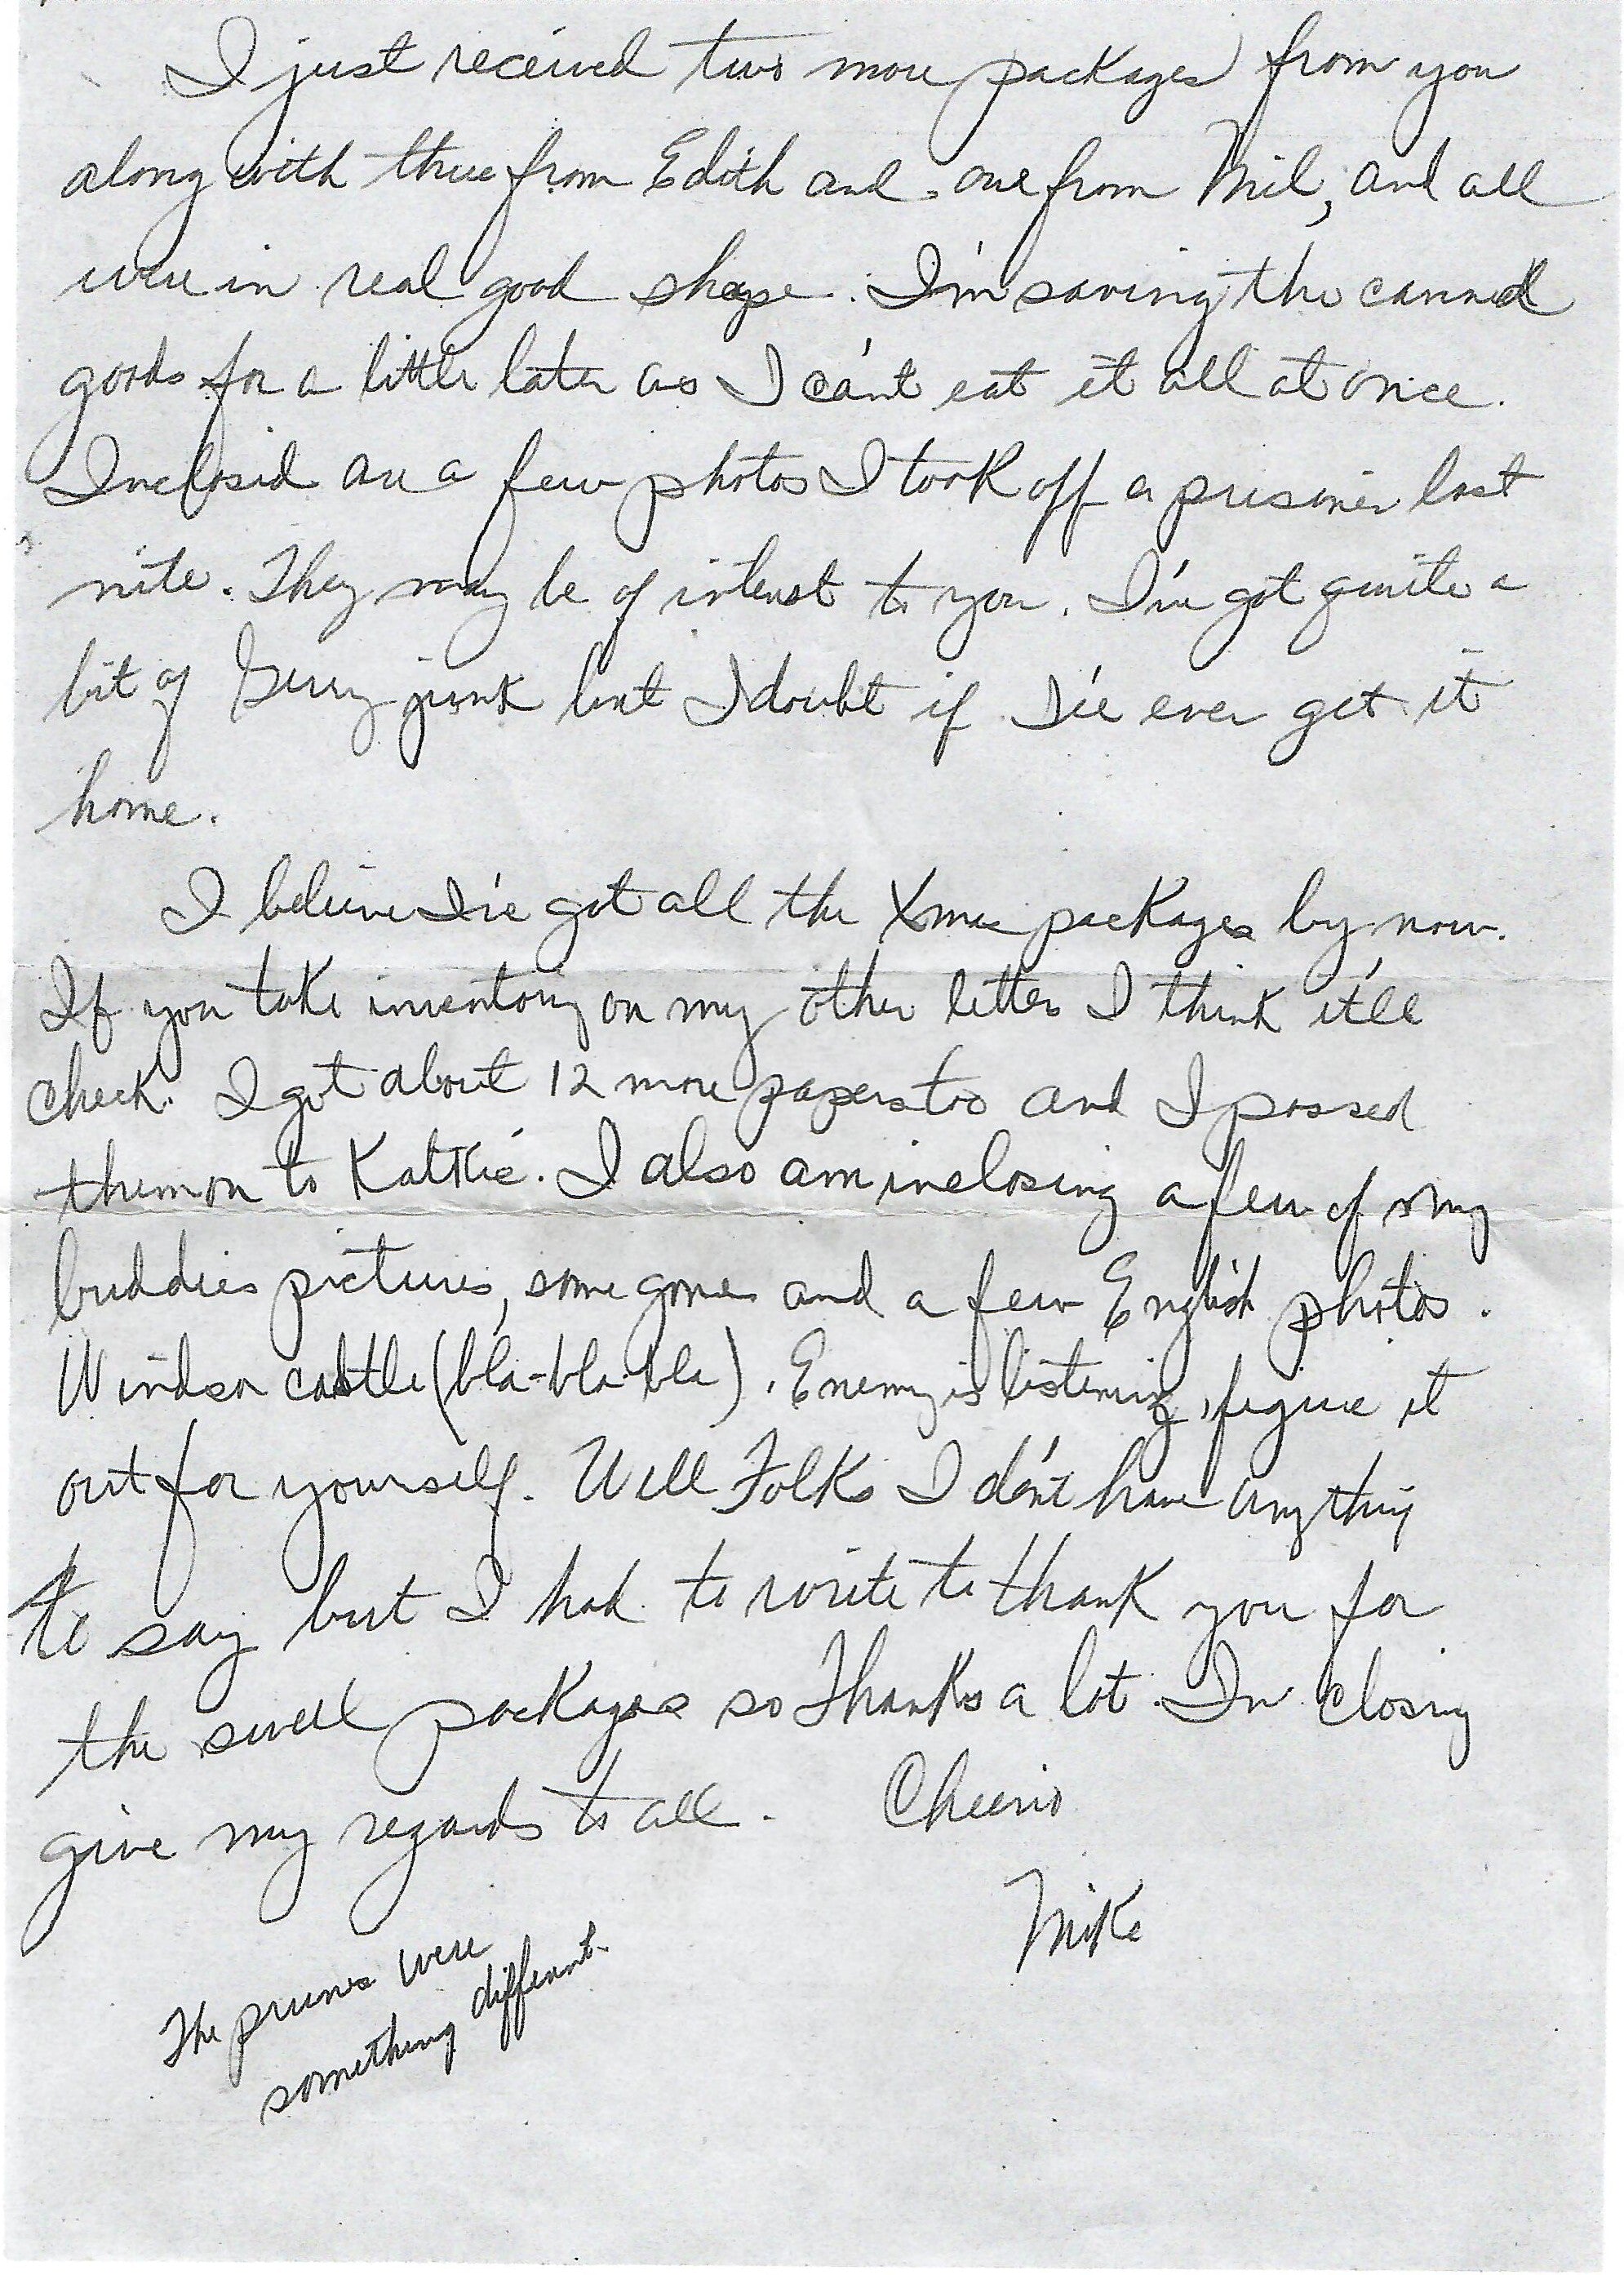 I just received two more packages from you
along with three from Edith and one from Mil, and all
were in real good shape. I'm saving the canned
goods for a little later as I can't eat it all at once.
Inclosed are a few photos I took off a prisoner last
nite. They may be of interest to you. I've got quite a
bit of Gerry junk but I doubt if I'll ever get it
home.
I believe I've got all the Xmas packages by now.
If you take inventory on my other letters I think it'll
check. I got about 12 more papers too and I passed
them on to Katkie. I also am inclosing a few of my
buddies pictures, some gone and a few English photos.
Windsor castle (bla-bla-bla). Enemy is listening, figure it
out for yourself. Well Folks I don't have anything
to say but I had to write to thank you for
the swell packages so Thanks a lot. In closing
give my regards to all. Cheerio
Mike
The prunes were
something different.